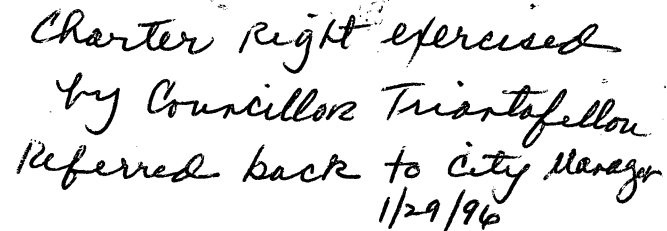 Charter Right exercised
by Councillor Triantafellou
Referred back to City Manager
1/29/96